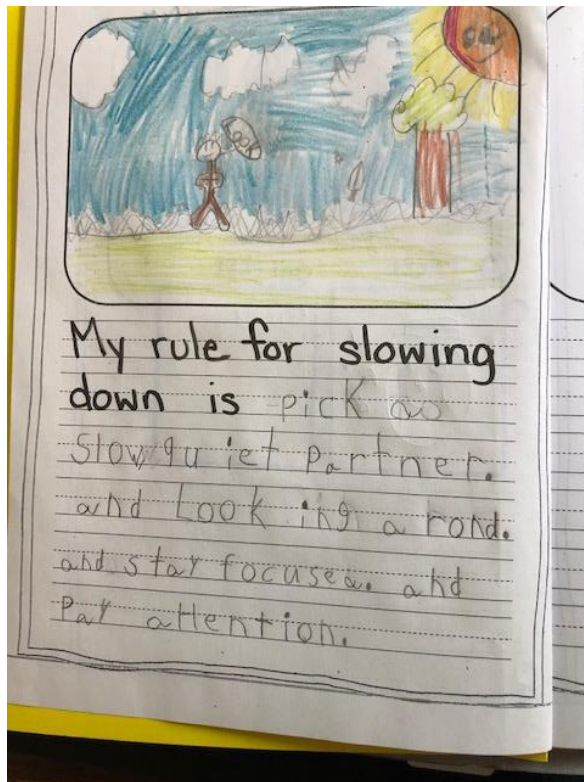 My rule for slowing
down is pick a
slow quiet partner.
and Look ing a rond.
and stay focused. and
Pay attention.